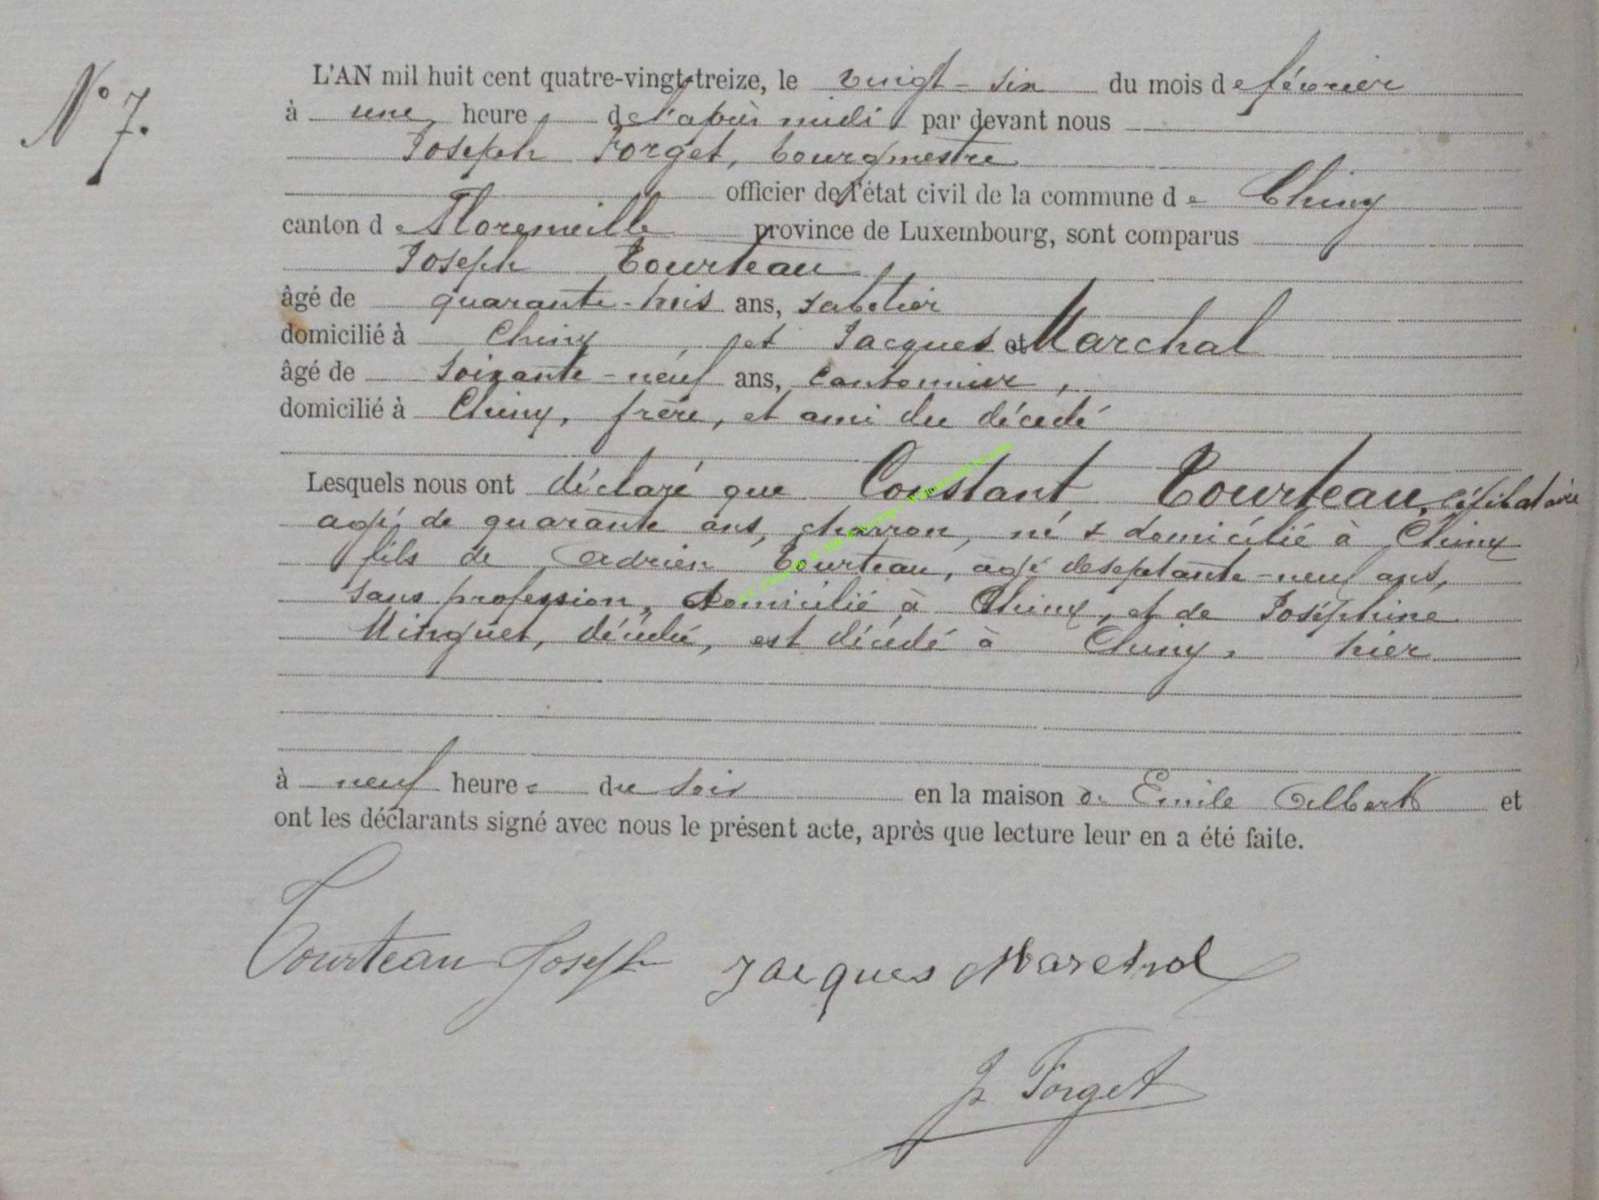 N° 7.
L'AN mil huit cent quatre-vingt-treize, le vingt-six du mois de février
à une heure de l'après midi par devant nous
Joseph Forget, bourgmestre
officier de l'état civil de la commune de Chiny
canton de Florenville province de Luxembourg, sont comparus
Joseph Tourteau,
âgé de quarante-trois ans, sabotier
domicilié à Chiny, et Jacques Marchal
âgé de soixante-neuf ans, cantonnier,
domicilié à Chiny, frère, et ami du décédé
Lesquels nous ont déclaré que Constant Tourteau, célibataire
agé de quarante ans, charron, né & domicilié à Chiny
fils de Adrien Tourteau, agé de septante-neuf ans,
sans profession, domicilié à Chiny, et de Joséphine
Minguet, décédée, est décédé à Chiny, hier
à neuf heures du soir en la maison de Emile Albert et
ont les déclarants signé avec nous le présent acte, après que lecture leur en a été faite.
Tourteau Joseph Jacques Marchal
J Forget